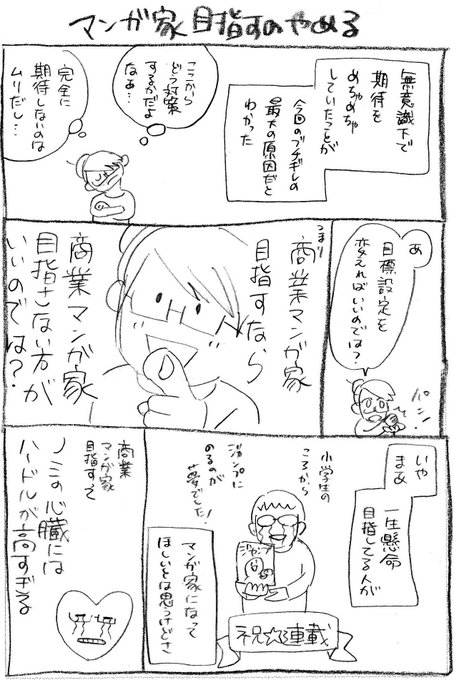 マンガ家目指すのやめる
無意識下で
期待を
めちゃめちゃ
していたことが
今回のブチギレの
最大の原因だと
わかった
ここから
どう対策
するかだよ
なあ…
完全に
期待しないのは
ムリだし…
あ
目標設定を
変えればいいのでは?
パン!
つまり
商業マンガ家
目指すなら
商業マンガ家
目指さない方が
いいのでは?
いや
まあ
一生懸命
目指してる人が
小学生の
ころから
ジャンプに
のるのが
夢でした!
ジャンプ
祝☆連載
マンガ家になって
ほしいとは思うけどさ
商業
マンガ家
目指すって
ノミの心臓には
ハードルが高すぎる